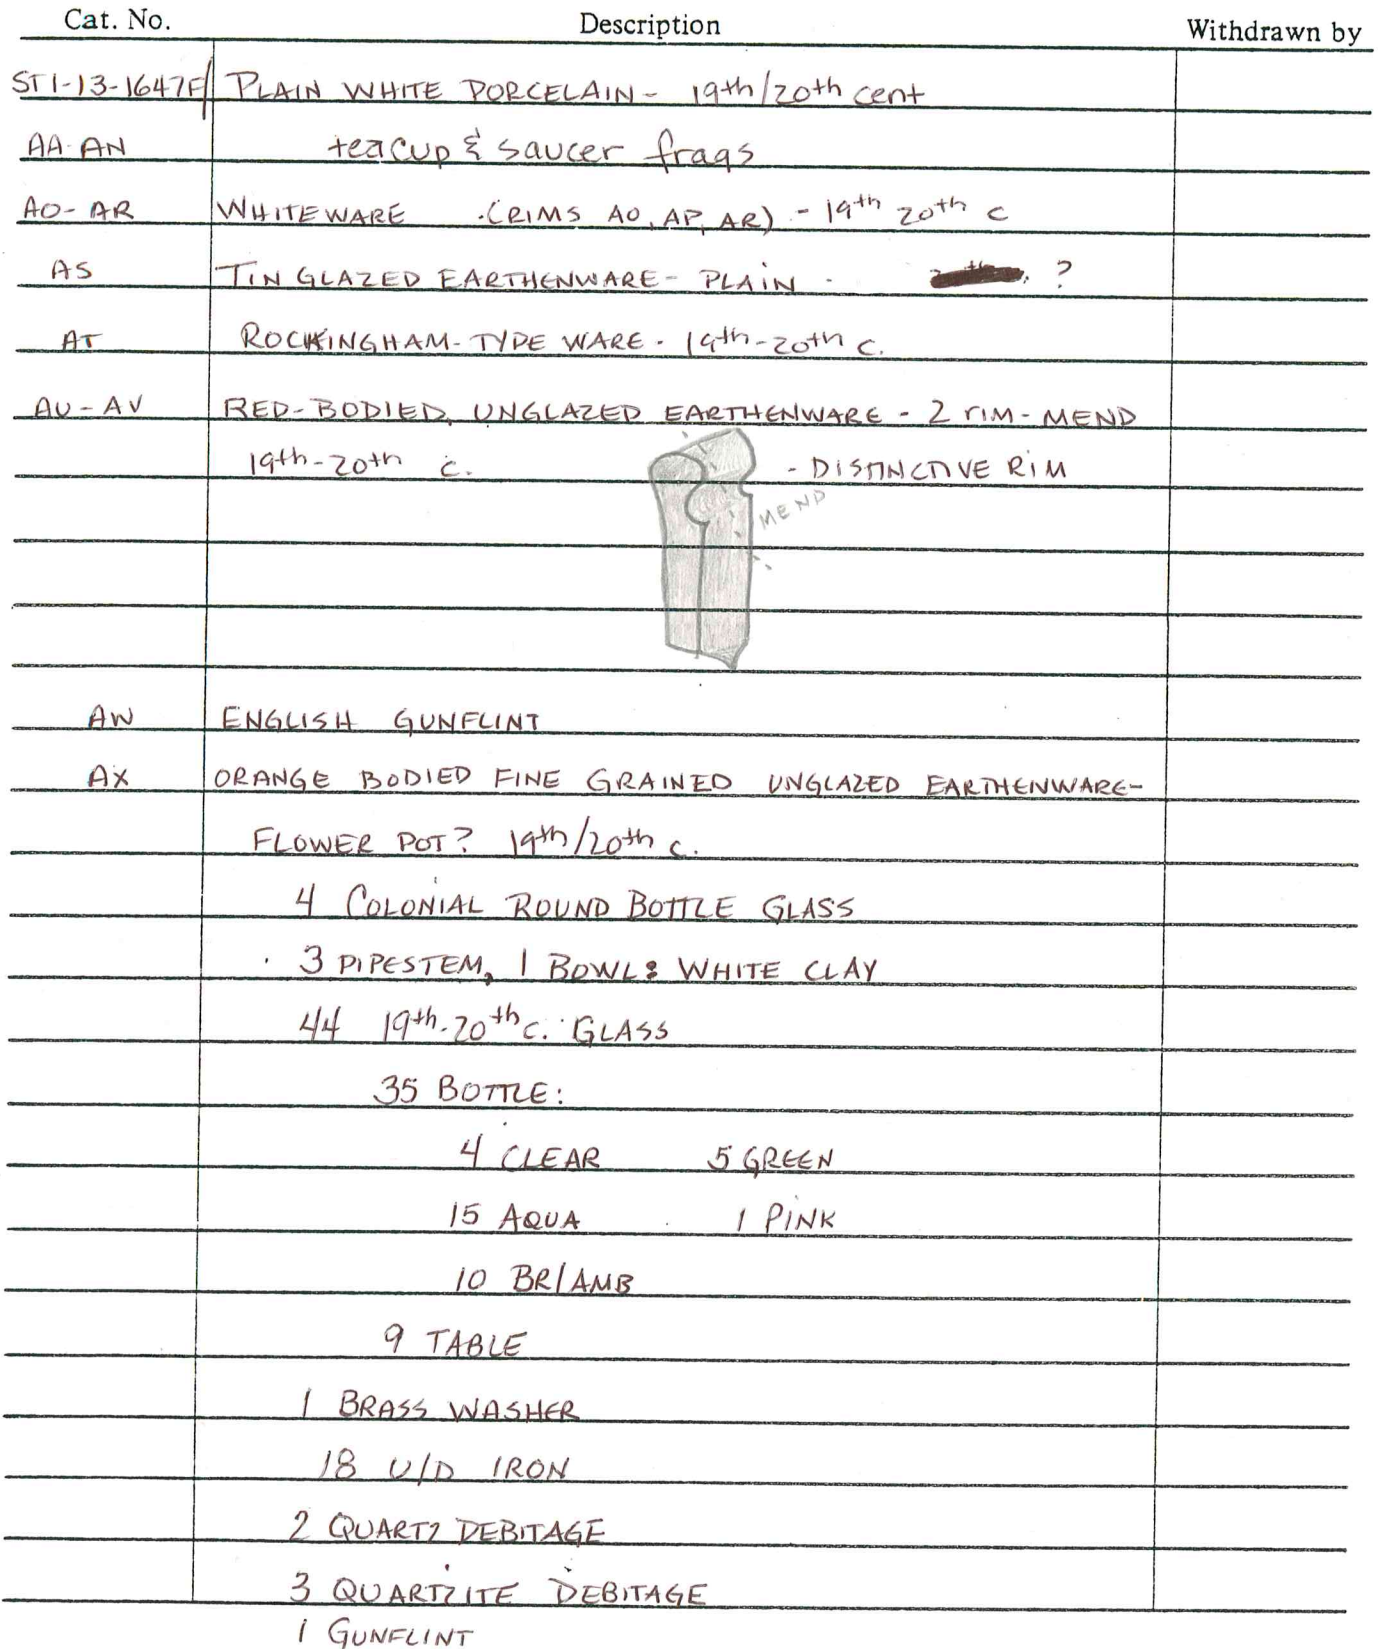 Cat. No. Description Withdrawn by
ST1-13-1647F/ PLAIN WHITE PORCELAIN - 19th/20th cent
AA-AN teacup & saucer frags
AO-AR WHITEWARE (RIMS AO, AP, AR) - 19th 20th c
AS TIN GLAZED EARTHENWARE - PLAIN - ?
AT ROCKINGHAM-TYPE WARE. 19th-20th c.
AU-AV RED-BODIED, UNGLAZED EARTHENWARE - 2 rim - MEND
19th-20th c. - DISTINCTIVE RIM
MEND
AW ENGLISH GUNFLINT
AX ORANGE BODIED FINE GRAINED UNGLAZED EARTHENWARE-
FLOWER POT? 19th/20th c.
4 COLONIAL ROUND BOTTLE GLASS
3 PIPESTEM, 1 BOWL: WHITE CLAY
44 19th-20th c. GLASS
35 BOTTLE:
4 CLEAR 5 GREEN
15 AQUA 1 PINK
10 BR/AMB
9 TABLE
1 BRASS WASHER
18 U/D IRON
2 QUARTZ DEBITAGE
3 QUARTZITE DEBITAGE
1 GUNFLINT